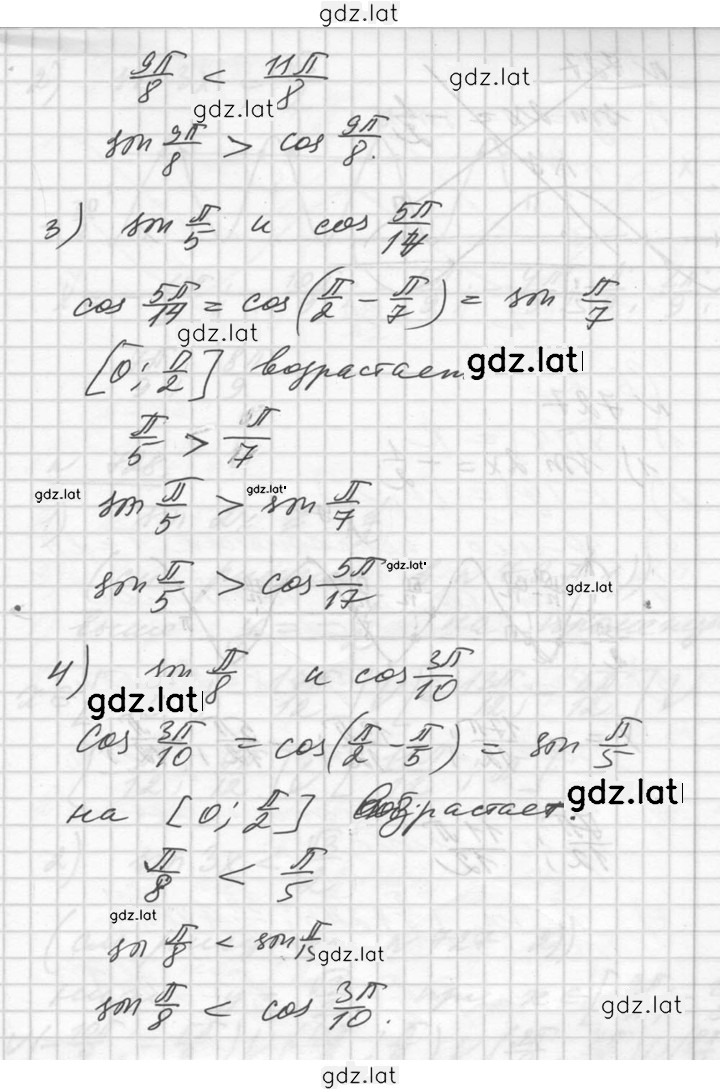 gdz.lat
9π/8 < 11π/8
gdz.lat
gdz.lat
sin 9π/8 > cos 9π/8.
3) sin π/5 и cos 5π/14
cos 5π/14 = cos(π/2 − π/7) = sin π/7
gdz.lat
[0; π/2] возрастает
gdz.lat
π/5 > π/7
gdz.lat
gdz.lat
sin π/5 > sin π/7
sin π/5 > cos 5π/17
gdz.lat
gdz.lat
4) sin π/8 и cos 3π/10
gdz.lat
cos 3π/10 = cos(π/2 − π/5) = sin π/5
на [0; π/2] возрастает.
gdz.lat
π/8 < π/5
gdz.lat
sin π/8 < sin π/5
gdz.lat
sin π/8 < cos 3π/10.
gdz.lat
gdz.lat